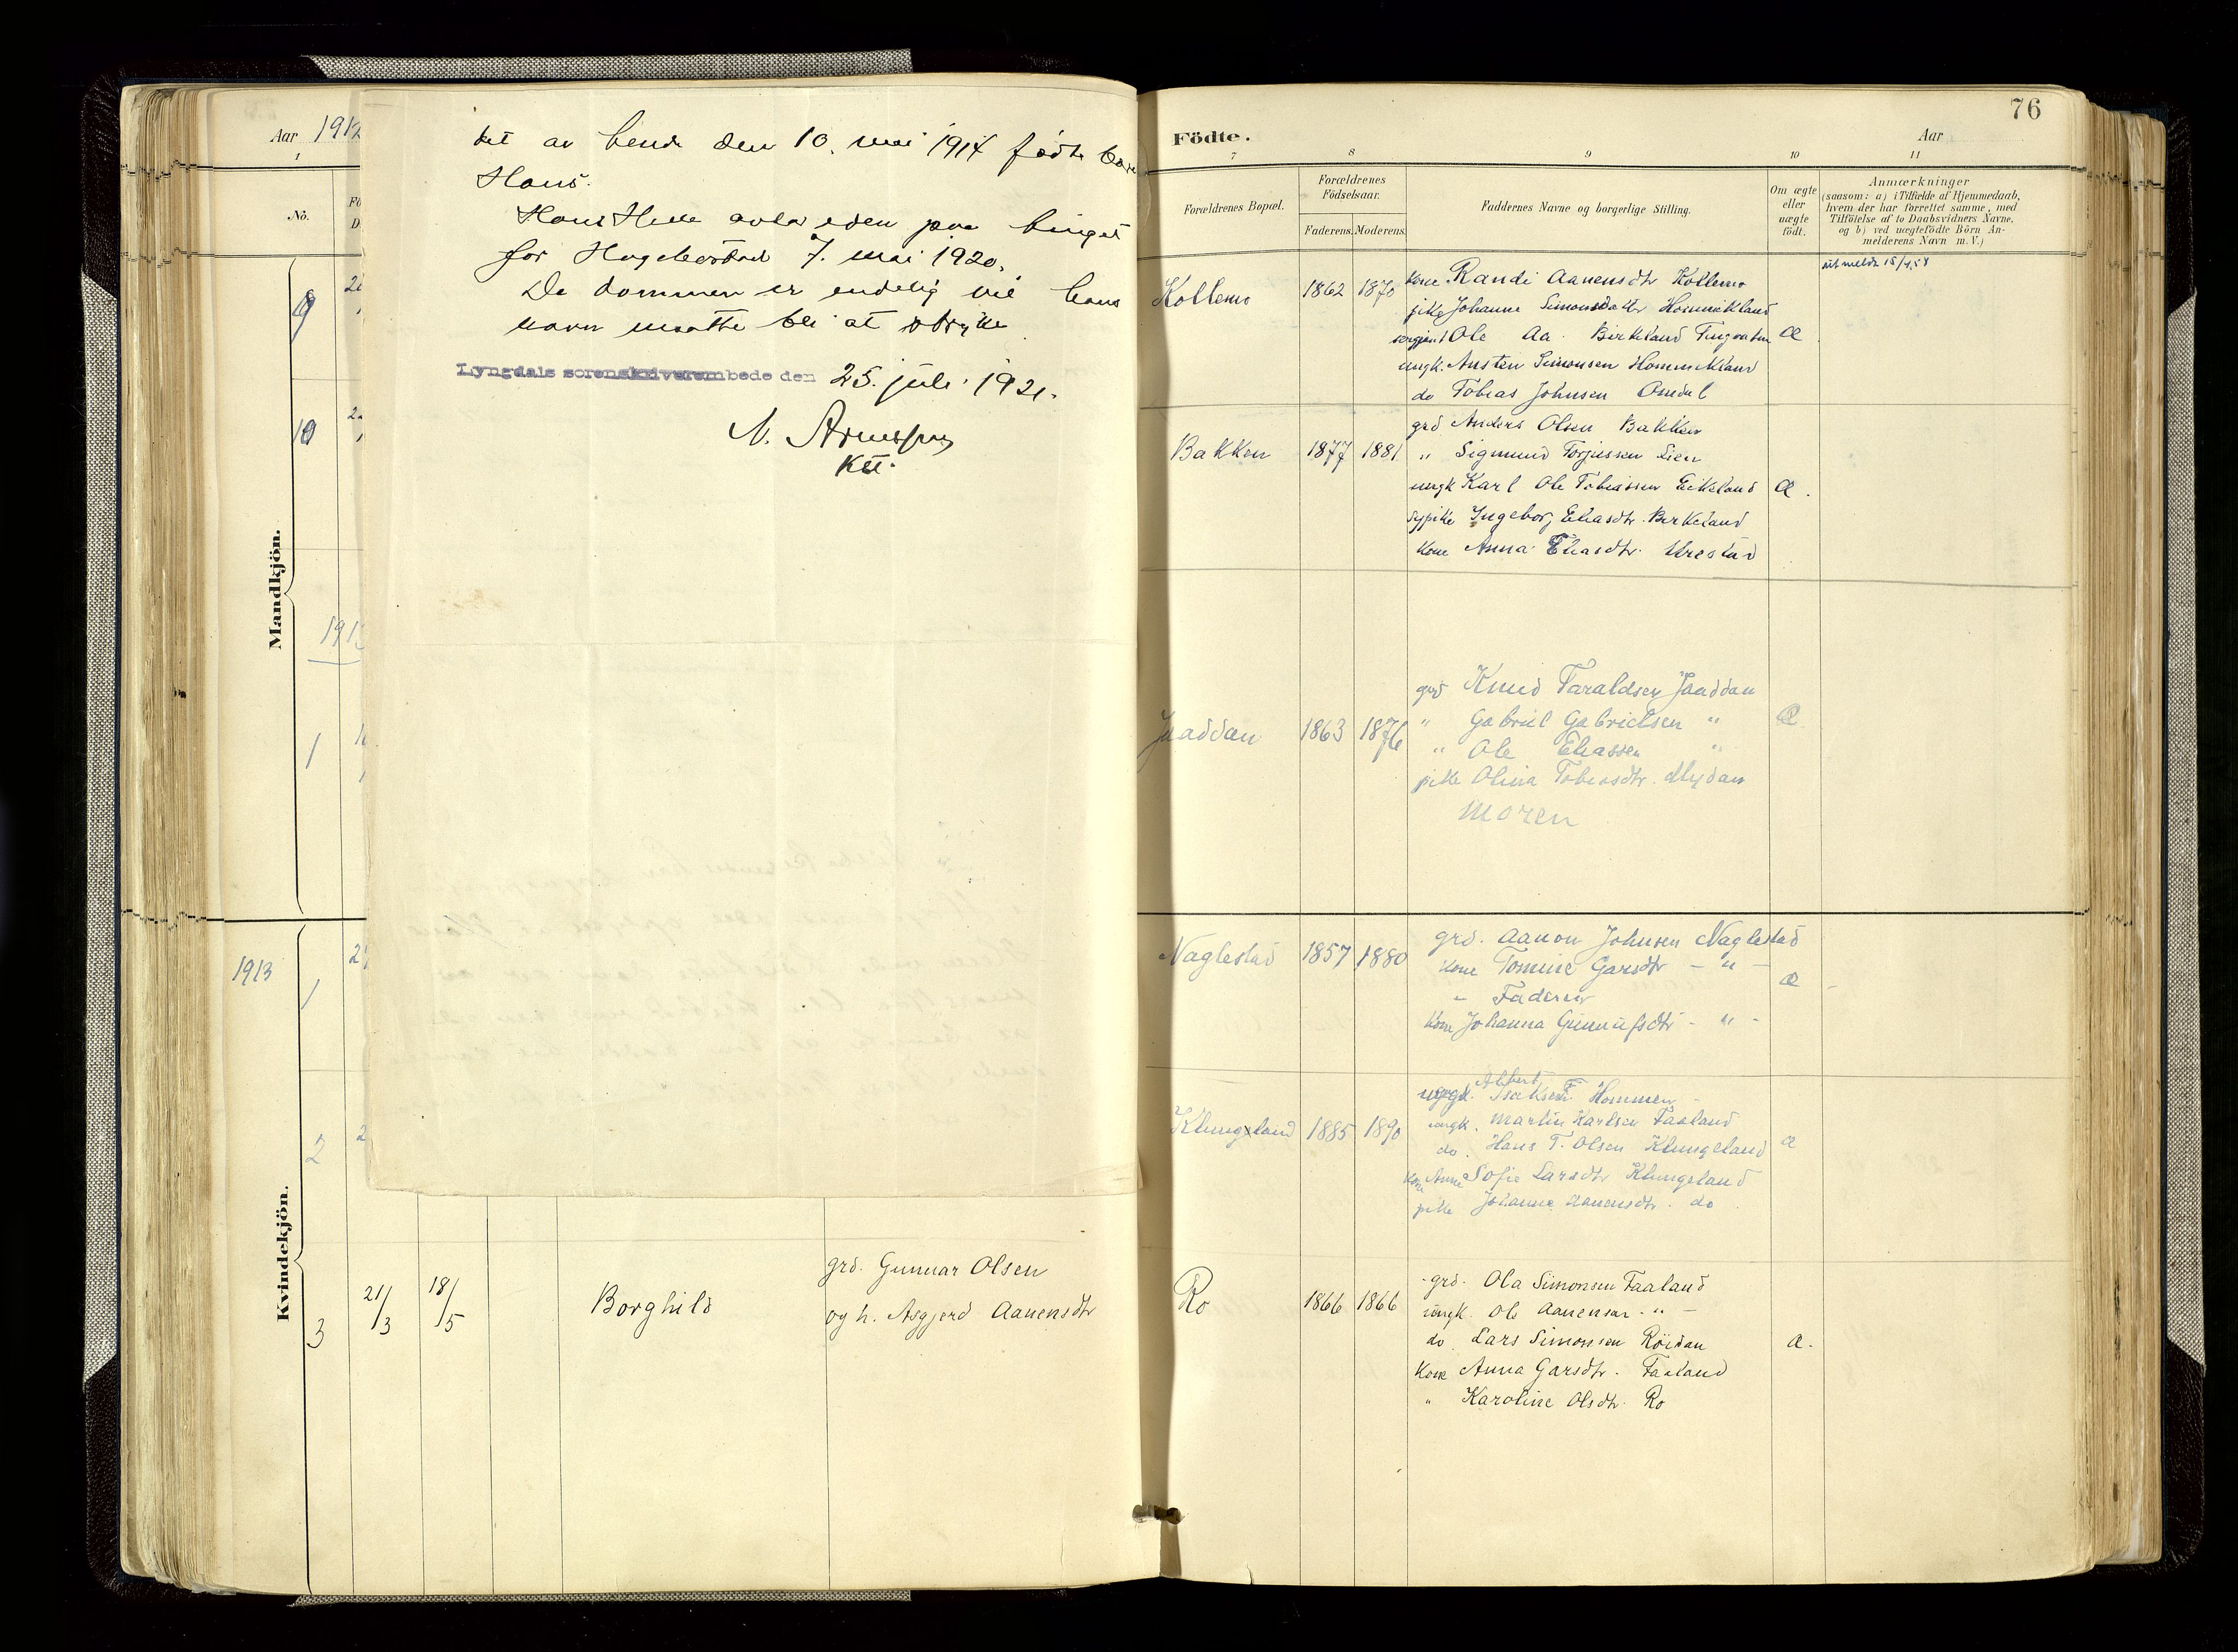 Aar 1912
1
No.
9
10
Mandkjön.
1
1913
1
2
Kvindekjön.
3
det av hende den 10. mai 1914 fødte barn
Hans.
Hans Helle avla eden paa tinget
for Hægebostad 7. mai 1920.
Da dommen er endelig vil hans
navn maatte bli at stryke
Lyngdals sorenskriverembede den 25. juli 1921.
kst.
21/3 18/5 Borghild
grd. Gunnar Olsen
og h. Asgjerd Aanensdtr
76
Födte. Aar
7 8 9 10 11
Forældrenes Bopæl.
Forældrenes Födselsaar.
Faderens. Moderens.
Faddernes Navne og borgerlige Stilling.
Om ægte eller uægte födt.
Anmærkninger
(saasom: a) i Tilfælde af Hjemmedaab,
hvem der har forrettet samme, med
Tilföielse af to Daabsvidners Navne,
og b) ved uægtefödte Börn An-
melderens Navn m. V.)
Kollemo 1862 1870
kone Randi Aanensdtr Kollemo
pike Johanne Simonsdatter Hommekland
sergeant Ole Aa. Birkeland Tingvatn Æ
ungk. Austen Simonsen Hommekland
do Tobias Johnsen Omdal
utmeldt
Bakken 1877 1881
grd Anders Olsen Bakken
" Sigmund Torjussen Lien
ungk Karl Ole Tobiassen Eikeland Æ.
sypike Ingeborg Eliasdtr. Birkeland
kone Anna Eliasdtr. Urestad
Jaaddan 1863 1876
grd Knud Taraldsen Jaaddan
" Gabriel Gabrielsen " Æ
" Ole Eliassen "
pike Olina Tobiasdtr.
Moren
Naglestad 1857 1880
grd. Aanon Johnsen Naglestad
kone Tomine Garsdtr - " - Æ
- Faderen
kone Johanna Gunnufsdtr - " -
Klungeland 1885 1890
ungk. Albert Isaksen Hommen
ungk. Martin Karlsen Faaland
do. Hans T. Olsen Klungeland Æ
kone Anne Sofie Larsdtr Klungeland
pike Johanne Aanensdtr. do
Ro 1866 1866
grd. Ola Simonsen Faaland
ungk. Ole Aanensen - " -
do. Lars Simonsen Röidan Æ.
kone Anna Garsdtr. Faaland
" Karoline Olsdtr. Ro